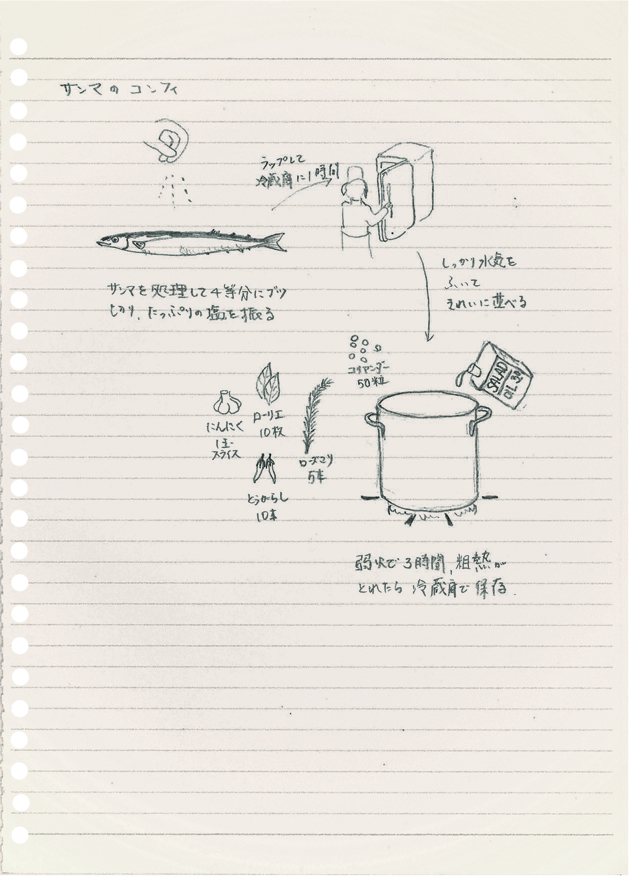 サンマのコンフィ
ラップして
冷蔵庫に1時間
サンマを処理して4等分にブツ
切り、たっぷりの塩を振る
しっかり水気を
ふいて
きれいに並べる
コリアンダー
50粒
SALAD
OIL
ローリエ
10枚
にんにく
1玉
スライス
ローズマリ
5本
とうがらし
10本
弱火で3時間、粗熱が
とれたら冷蔵庫で保存.